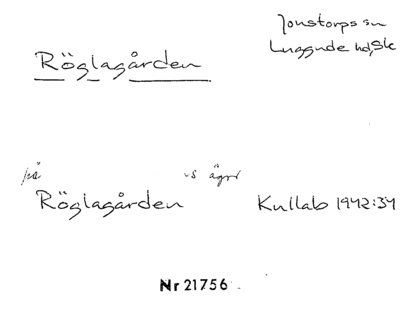 Jonstorps sn
Luggude hd, Sk
Röglagården
på -s ägor
Röglagården Kullab 1942:34
Nr 21756